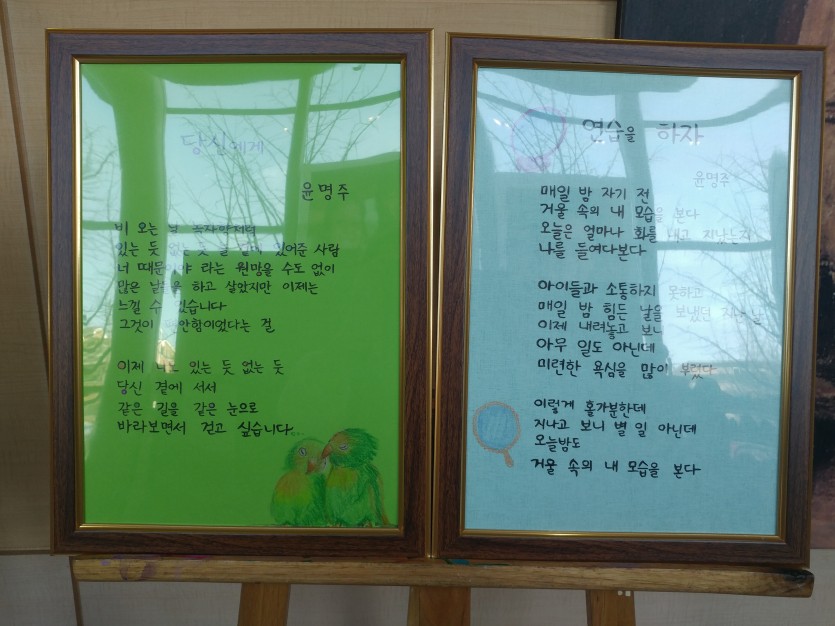 당신에게
윤명주
비 오는 날
있는 듯 없는 듯 날 같이 있어준 사람
너 때문이야 라는 원망을 수도 없이
많은 날들을 하고 살았지만 이제는
느낄 수 있습니다
그것이 미안함이었다는 걸
이제 나도 있는 듯 없는 듯
당신 곁에 서서
같은 길을 같은 눈으로
바라보면서 걷고 싶습니다
연습을 하자
윤명주
매일 밤 자기 전
거울 속의 내 모습을 본다
오늘은 얼마나 화를 내고 지났는지
나를 들여다본다
아이들과 소통하지 못하고
매일 밤 힘든 날을 보냈던 지난날
이제 내려놓고 보니
아무 일도 아닌데
미련한 욕심을 많이 부렸다
이렇게 홀가분한데
지나고 보니 별 일 아닌데
오늘밤도
거울 속의 내 모습을 본다